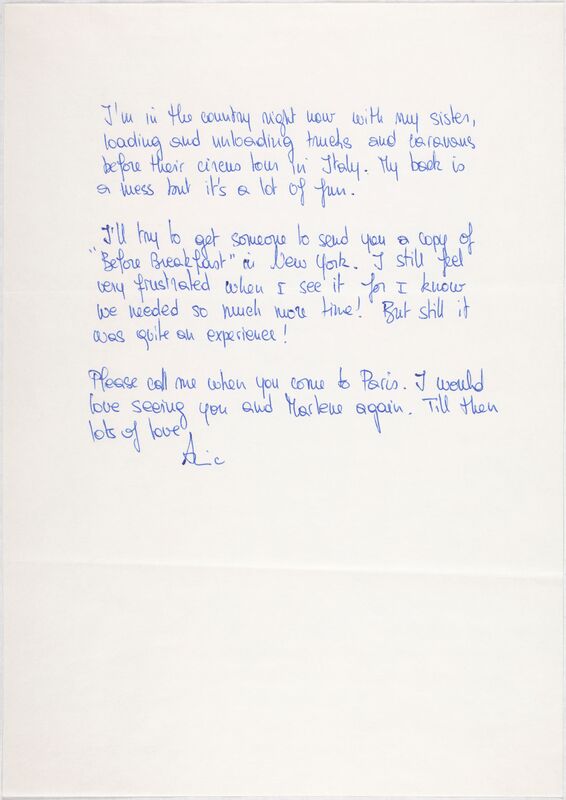 I'm in the country right now with my sister,
loading and unloading trucks and caravans
before their circus tour in Italy. My back is
a mess but it's a lot of fun.
I'll try to get someone to send you a copy of
"Before Breakfast" in New York. I still feel
very frustrated when I see it for I know
we needed so much more time! But still it
was quite an experience!
Please call me when you come to Paris. I would
love seeing you and Marlene again. Till then
lots of love